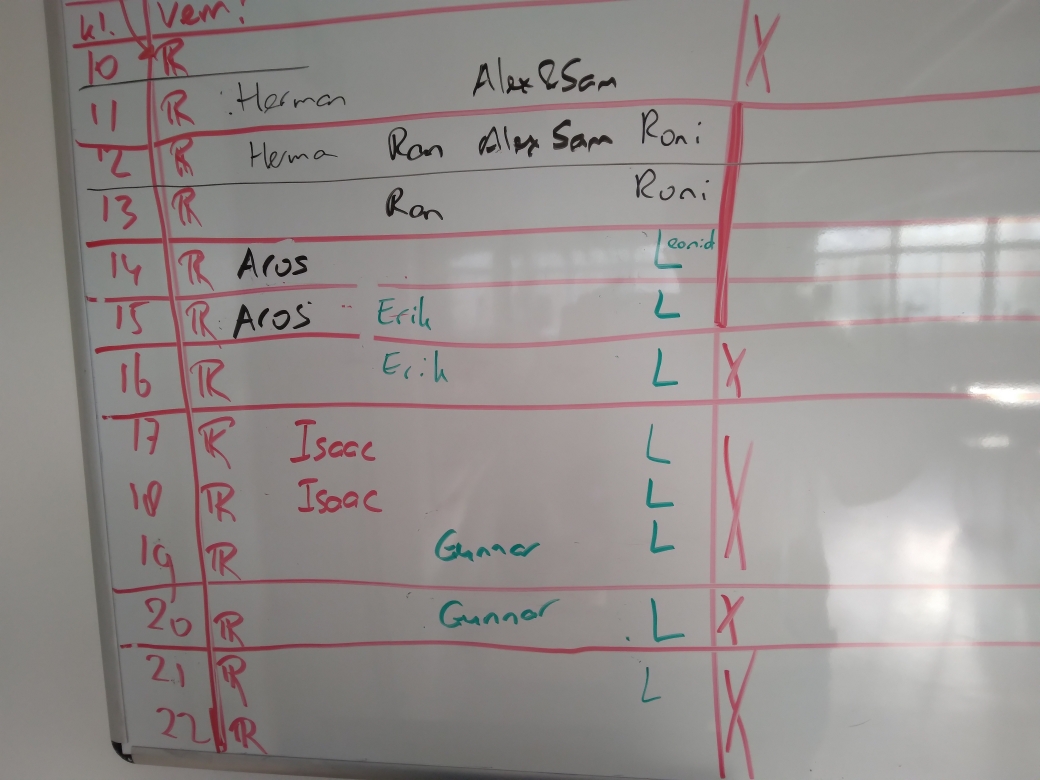 kl. Vem?
10 R X
11 R Herman Alex & Sam
12 R Herma Ran Alex Sam Roni
13 R Ran Roni
14 R Aros Leonid
15 R Aros Erik L
16 R Erik L X
17 R Isaac L
18 R Isaac L X
19 R Gunnar L
20 R Gunnar L X
21 R L X
22 R